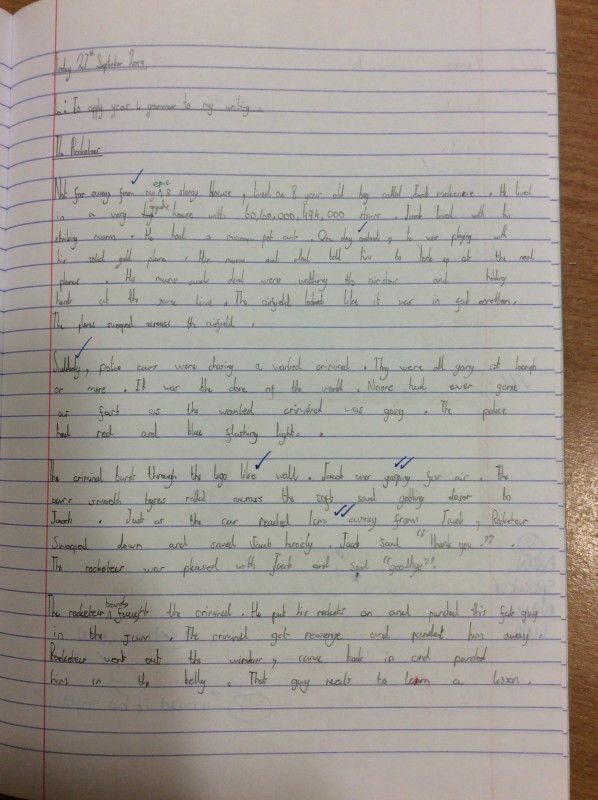 Friday 27th September 2019
L.O: To apply year 4 grammar to my writing.
The Rocketeer
Not far away from my epic dancy House, lived an 8 year old boy called Jacob . He lived
in a very house with 60,100,000,494,000 . Jacob lived with his
mum. He had a pet ant. One day , he was playing with
his solid gold plane. His mum and dad told him to look up at the real
planes. His mum and dad were watching the window and holding
hands at the same time. The airfield looked like it was in fast motion.
The planes swooped across the airfield.
Suddenly, police cars were chasing a wanted criminal. They were all going at
or more. It was the of the world. Noone had ever gone
as fast as the wanted criminal was going. The police
had red and blue flashing lights.
The criminal burst through the lego like wall. Jacob was gasping for air. The
cars smooth tyres rolled across the soft sand getting closer to
Jacob. Just as the car reached 1cm away from Jacob, Rocketeer
Swooped down and saved Jacob . Jacob said "thank you!"
The rocketeer was pleased with Jacob and said "goodbye".
The rocketeer bravely fought the criminal. He put his rockets on and punched this fat guy
in the jaw. The criminal got revenge and punched him away.
Rocketeer went out the window, came back in and punched
him in the belly. That guy needs to learn a lesson.